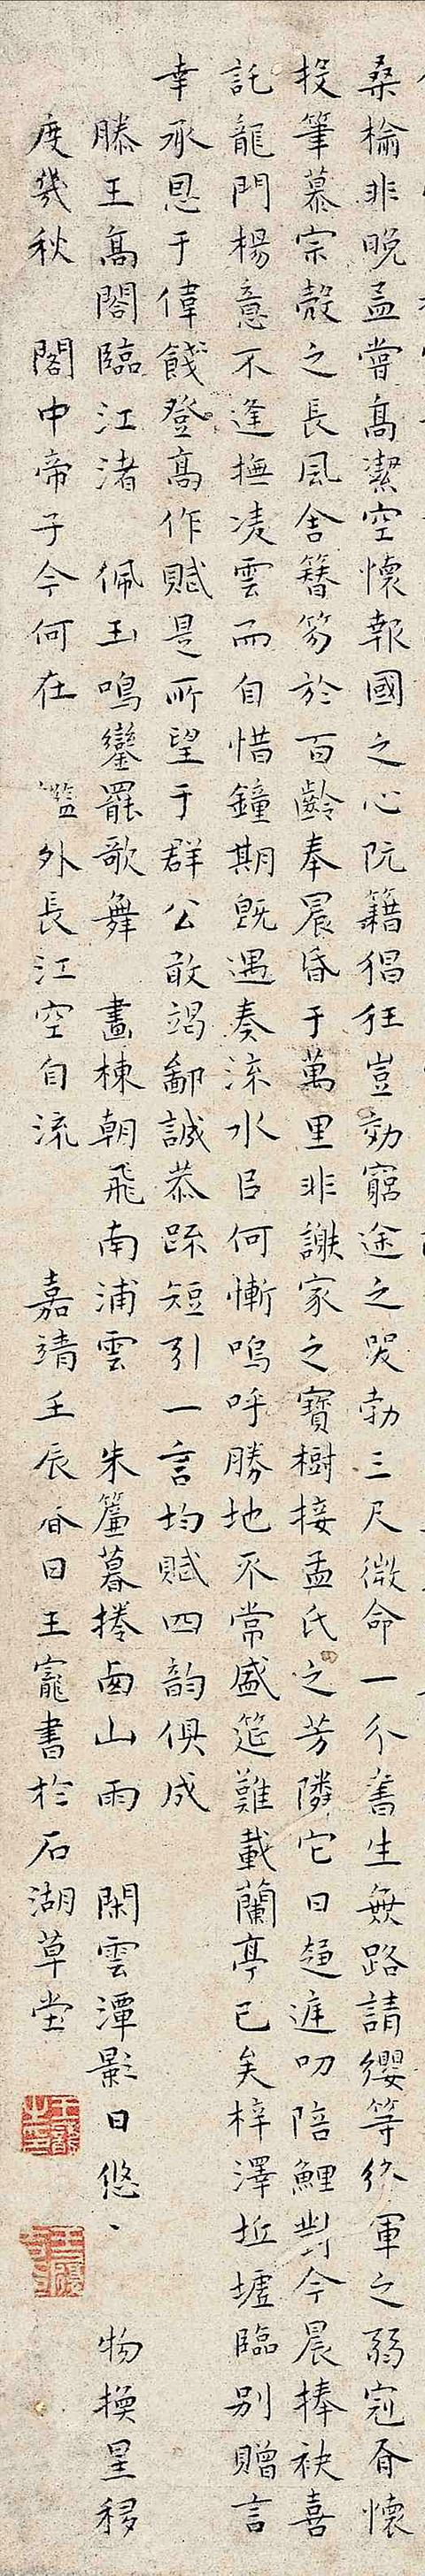 桑榆非晚孟嘗高潔空懷報國之心阮籍猖狂豈効窮途之哭勃三尺微命一介書生無路請纓等終軍之弱冠有懷
投筆慕宗慤之長風舍簪笏於百齡奉晨昏于萬里非謝家之寶樹接孟氏之芳隣它日趍庭叨陪鯉對今晨捧袂喜
託龍門楊意不逢撫凌雲而自惜鐘期旣遇奏流水㠯何慚嗚呼勝地不常盛筵難載蘭亭已矣梓澤丘墟臨別贈言
幸承恩于偉餞登高作賦是所望于群公敢竭鄙誠恭疏短引一言均賦四韵俱成
滕王高閣臨江渚 佩玉鳴鑾罷歌舞 畫棟朝飛南浦雲 朱簾暮捲西山雨 閑雲潭影日悠丶 物換星移
度幾秋 閣中帝子今何在 檻外長江空自流 嘉靖壬辰春日王寵書於石湖草堂